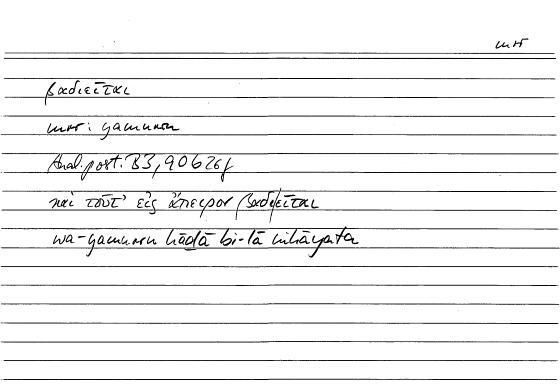 mrr
βαδιεῖται
mrr : yamurru
Anal. post. B3, 90b26f
καὶ τοῦτ' εἰς ἄπειρον βαδιεῖται
wa-yamurru hāḏā bi-lā nihāyata